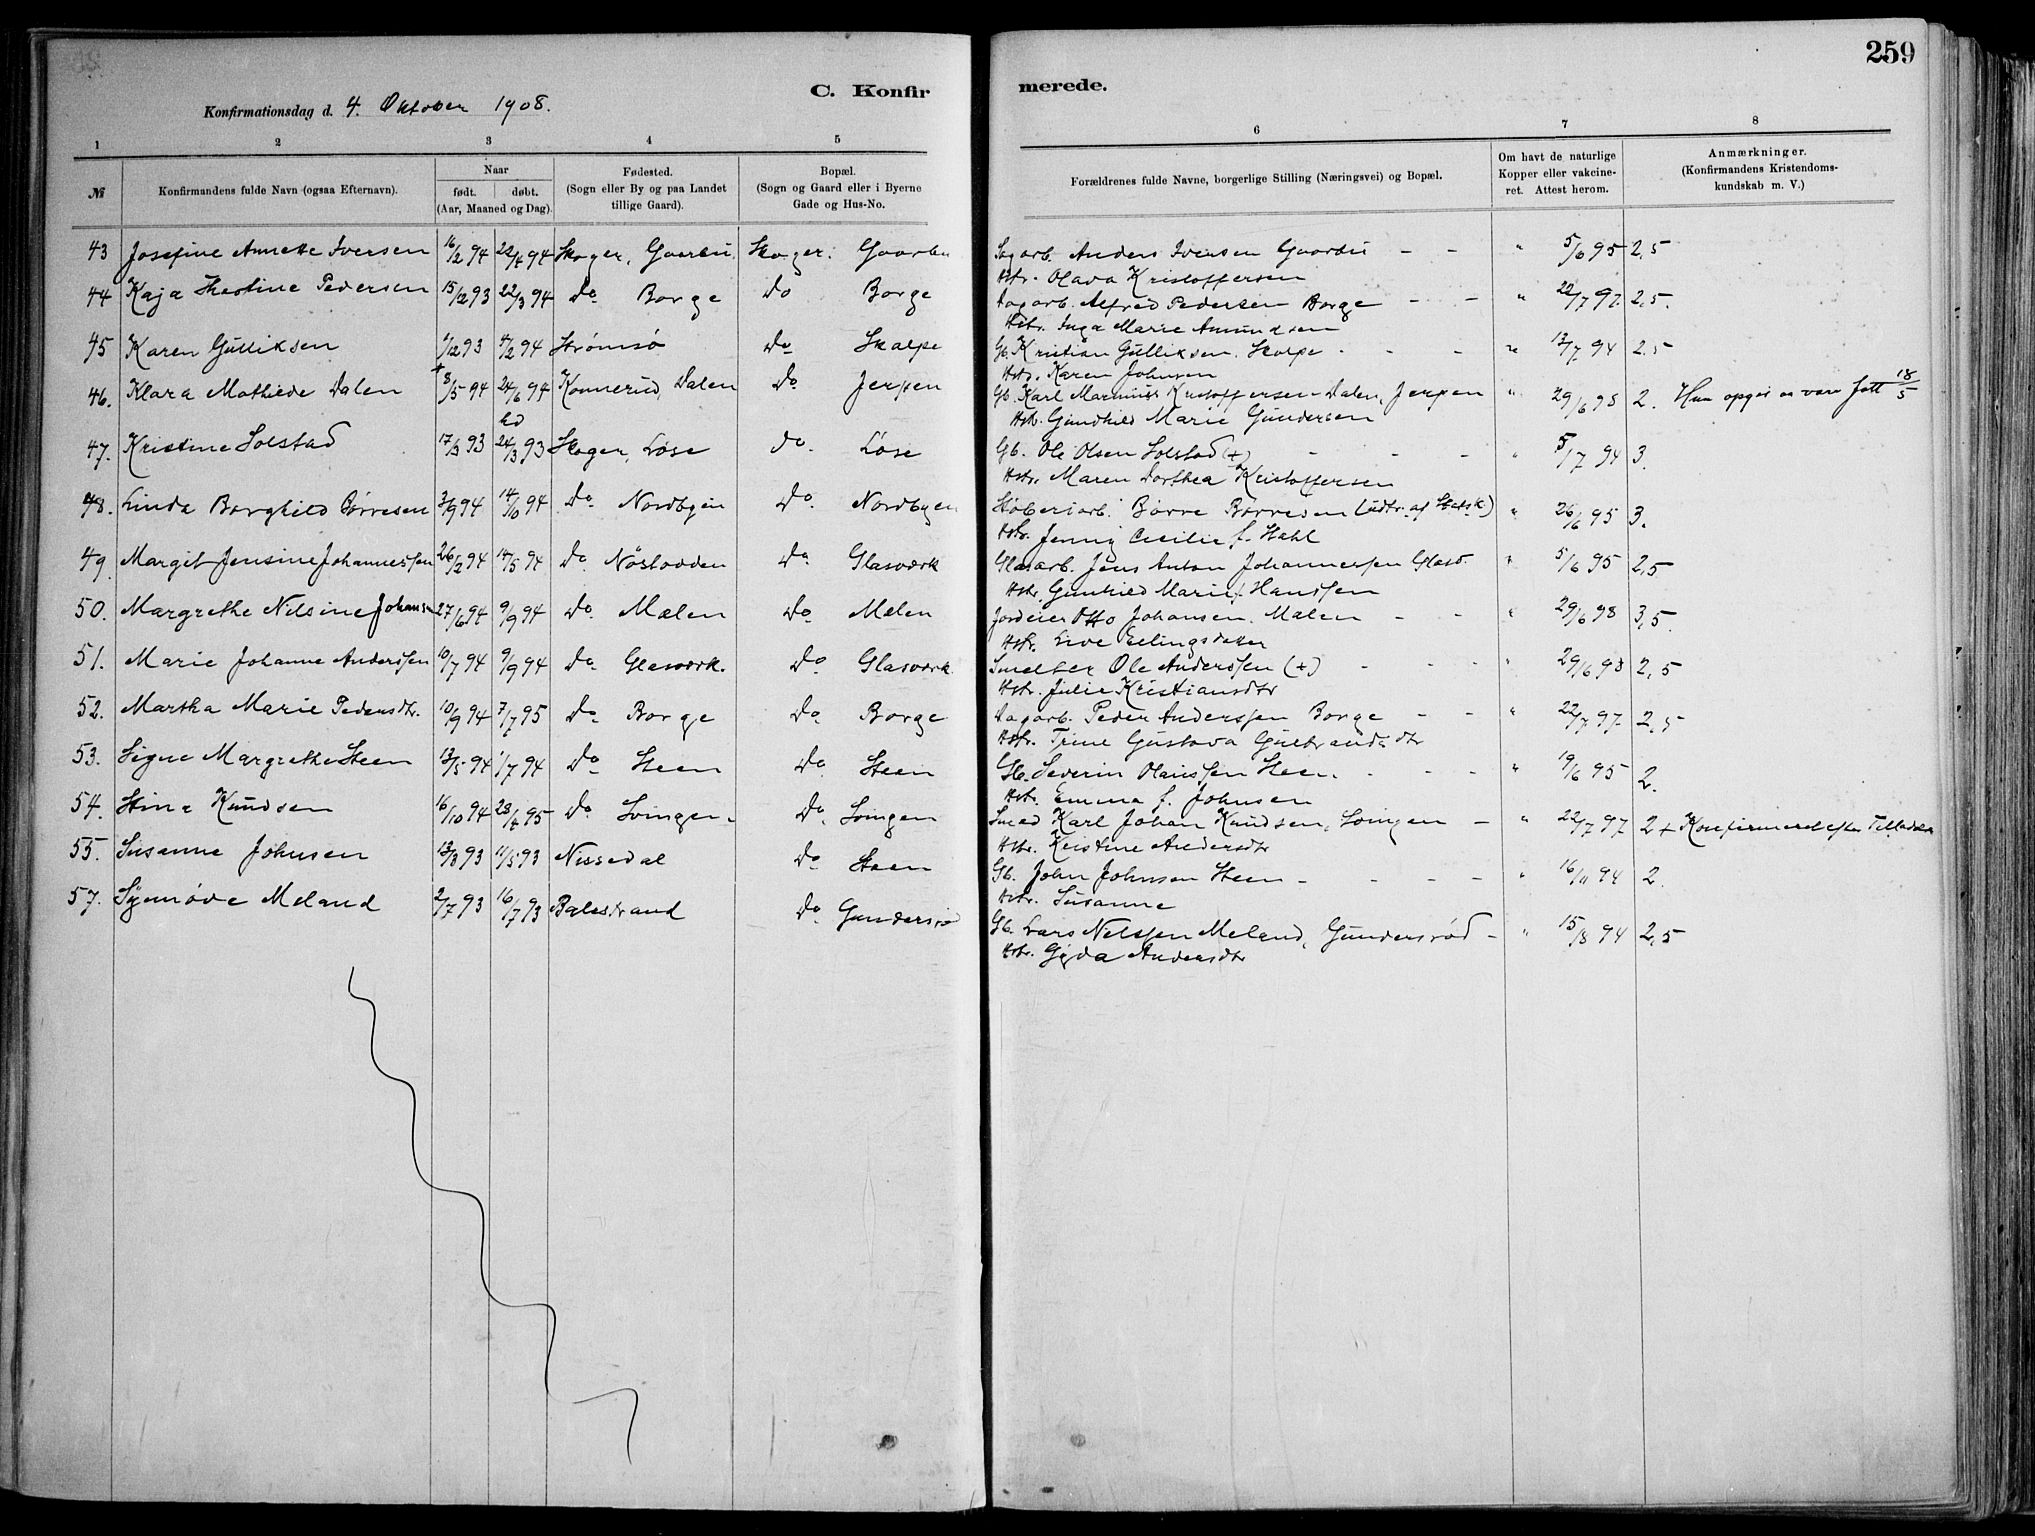 259
C. Konfir merede.
Konfirmationsdag d. 4. Oktober 1908.
1 2 3 4 5 6 7 8
№
Konfirmandens fulde Navn (ogsaa Efternavn).
Naar
født. døbt.
(Aar, Maaned og Dag).
Fødested.
(Sogn eller By og paa Landet
tillige Gaard).
Bopæl.
(Sogn og Gaard eller i Byerne
Gade og Hus-No.
Forældrenes fulde Navne, borgerlige Stilling (Næringsvei) og Bopæl.
Om havt de naturlige
Kopper eller vakcine-
ret. Attest herom.
Anmærkninger.
(Konfirmandens Kristendoms-
kundskab m. V.)
43 Josefine Annette Iversen 16/2 94 22/4 94 Skoger, Gaarbu. Skoger. Gaarbu Sagarb. Anders Iversen Gaarbu – – " 5/6 95 2,5
Hstr. Olava Kristoffersen
44 Kaja Thestine Pedersen 15/12 93 22/3 94 Do Borge Do Borge Dagarb. Alfred Pedersen Borge – – " 22/7 97. 2,5.
Hstr. Inga Marie Amundsen
45 Karen Gulliksen /12 93 4/2 94 Strømsø Do Skalpe Gb. Kristian Gulliksen. Skalpe - - - " 17/7 94 2.5
Hstr. Karen Johnsen
46. Klara Mathilde Dalen 8/5 94 24/6 94 Konnerud, Dalen Do Jerpen Gb. Karl Marinius Kristoffersen Dalen, Jerpen " 29/6 98 2. Hun opgis at være født 18/5
Hstr. Gundhild Marie Gundersen
47. Kristine Solstad 17/3 93 hd 24/3 93 Skoger, Løse do. Løse Gb. Ole Olsen Solstad (+) - - - " 5/7 94 3.
Hstr. Maren Dorthea Kristoffersen
48. Linda Borghild Børresen 3/9 94 14/10 94 Do Nordbyen Do. Nordbyen Støberiarb. Børre Børresen (udtr. af Statsk) " 26/6 95 3.
Hstr. Jenny Cecilie f. Stahl
49. Margit Jensine Johannessen 26/2 94 14/5 94 Do Nøstodden Do Glasværk Glasarb. Jens Anton Johannessen Glasv. " 5/6 95 2,5
Hstr. Gunhild Marie f. Hanssen
50. Margrethe Nilsine Johansen 27/6 94 9/9 94 Do. Mælen Do. Mælen Jordeier Otto Johansen. Mælen – – " 29/6 98 3,5.
Hstr. Live Ellingsdatter
51. Marie Johanne Anderssen 10/7 94 9/9 94 Do Glasværk. Do Glasværk. Smelter Ole Anderssen (+) - - - " 29/6 98 2,5
Hstr. Julie Kristiansdtr
52. Martha Marie Pedersdtr. 10/9 94 7/7 95 Do Borge Do Borge Dagarb. Peder Anderssen Borge - - " 22/7 97. 2,5
Hstr. Trine Gustava Gulbrandsdtr
53. Signe Margrethe Steen 13/5 94 1/7 94 Do Steen Do Steen Gb. Severin Olaussen Steen. - - - " 19/6 95 2.
Hstr. Emma f. Johnsen
54. Stina Knudsen 16/10 94 28/4 95 Do Svingen. Do. Svingen Smed Karl Johan Knudsen, Svingen – " 22/7 97 2 + Konfirmeret efter Tilladelse
Hstr. Kristine Andersdtr
55. Susanne Johnsen 13/3 93 11/5 93 Nissedal Do Steen Gb. John Johnsen Steen - - - - " 16/11 94 2.
Hstr. Susanne
57. Synnøve Meland 2/7 93 16/7 93 Balestrand Do Gundersrød Gb. Lars Nelssen Meland, Gundersrød - " 15/8 94 2,5
Hstr. Gjøa Andersdtr